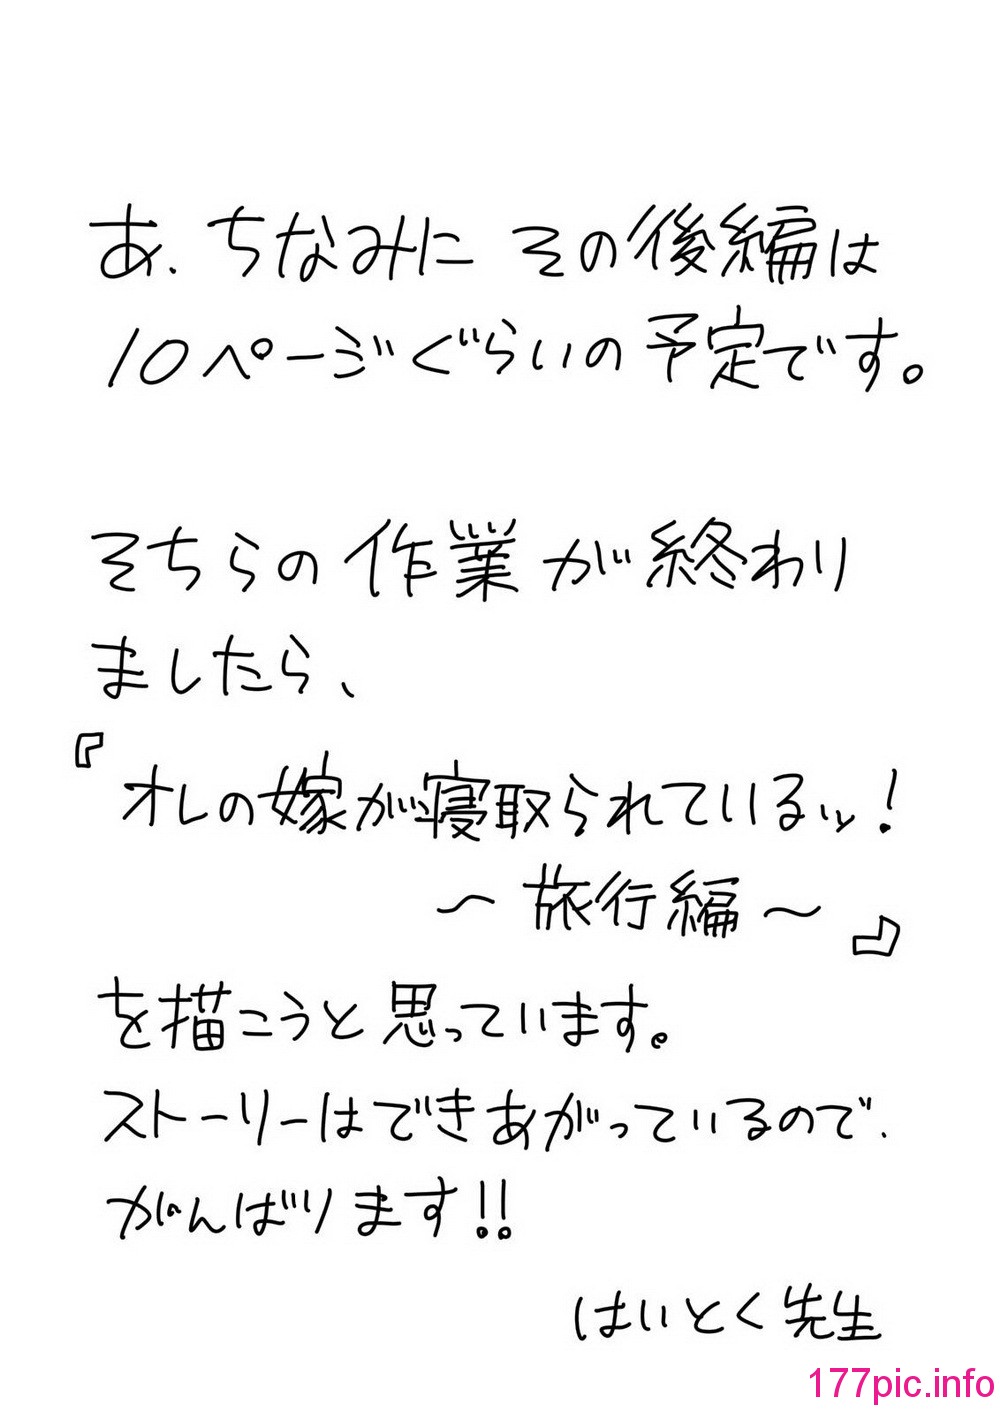 あ、ちなみに その後編は
10ページぐらいの予定です。
そちらの作業が終わり
ましたら、
『オレの嫁が寝取られているッ!
〜旅行編〜』
を描こうと思っています。
ストーリーはできあがっているので、
がんばります!!
はいとく先生
177pic.info